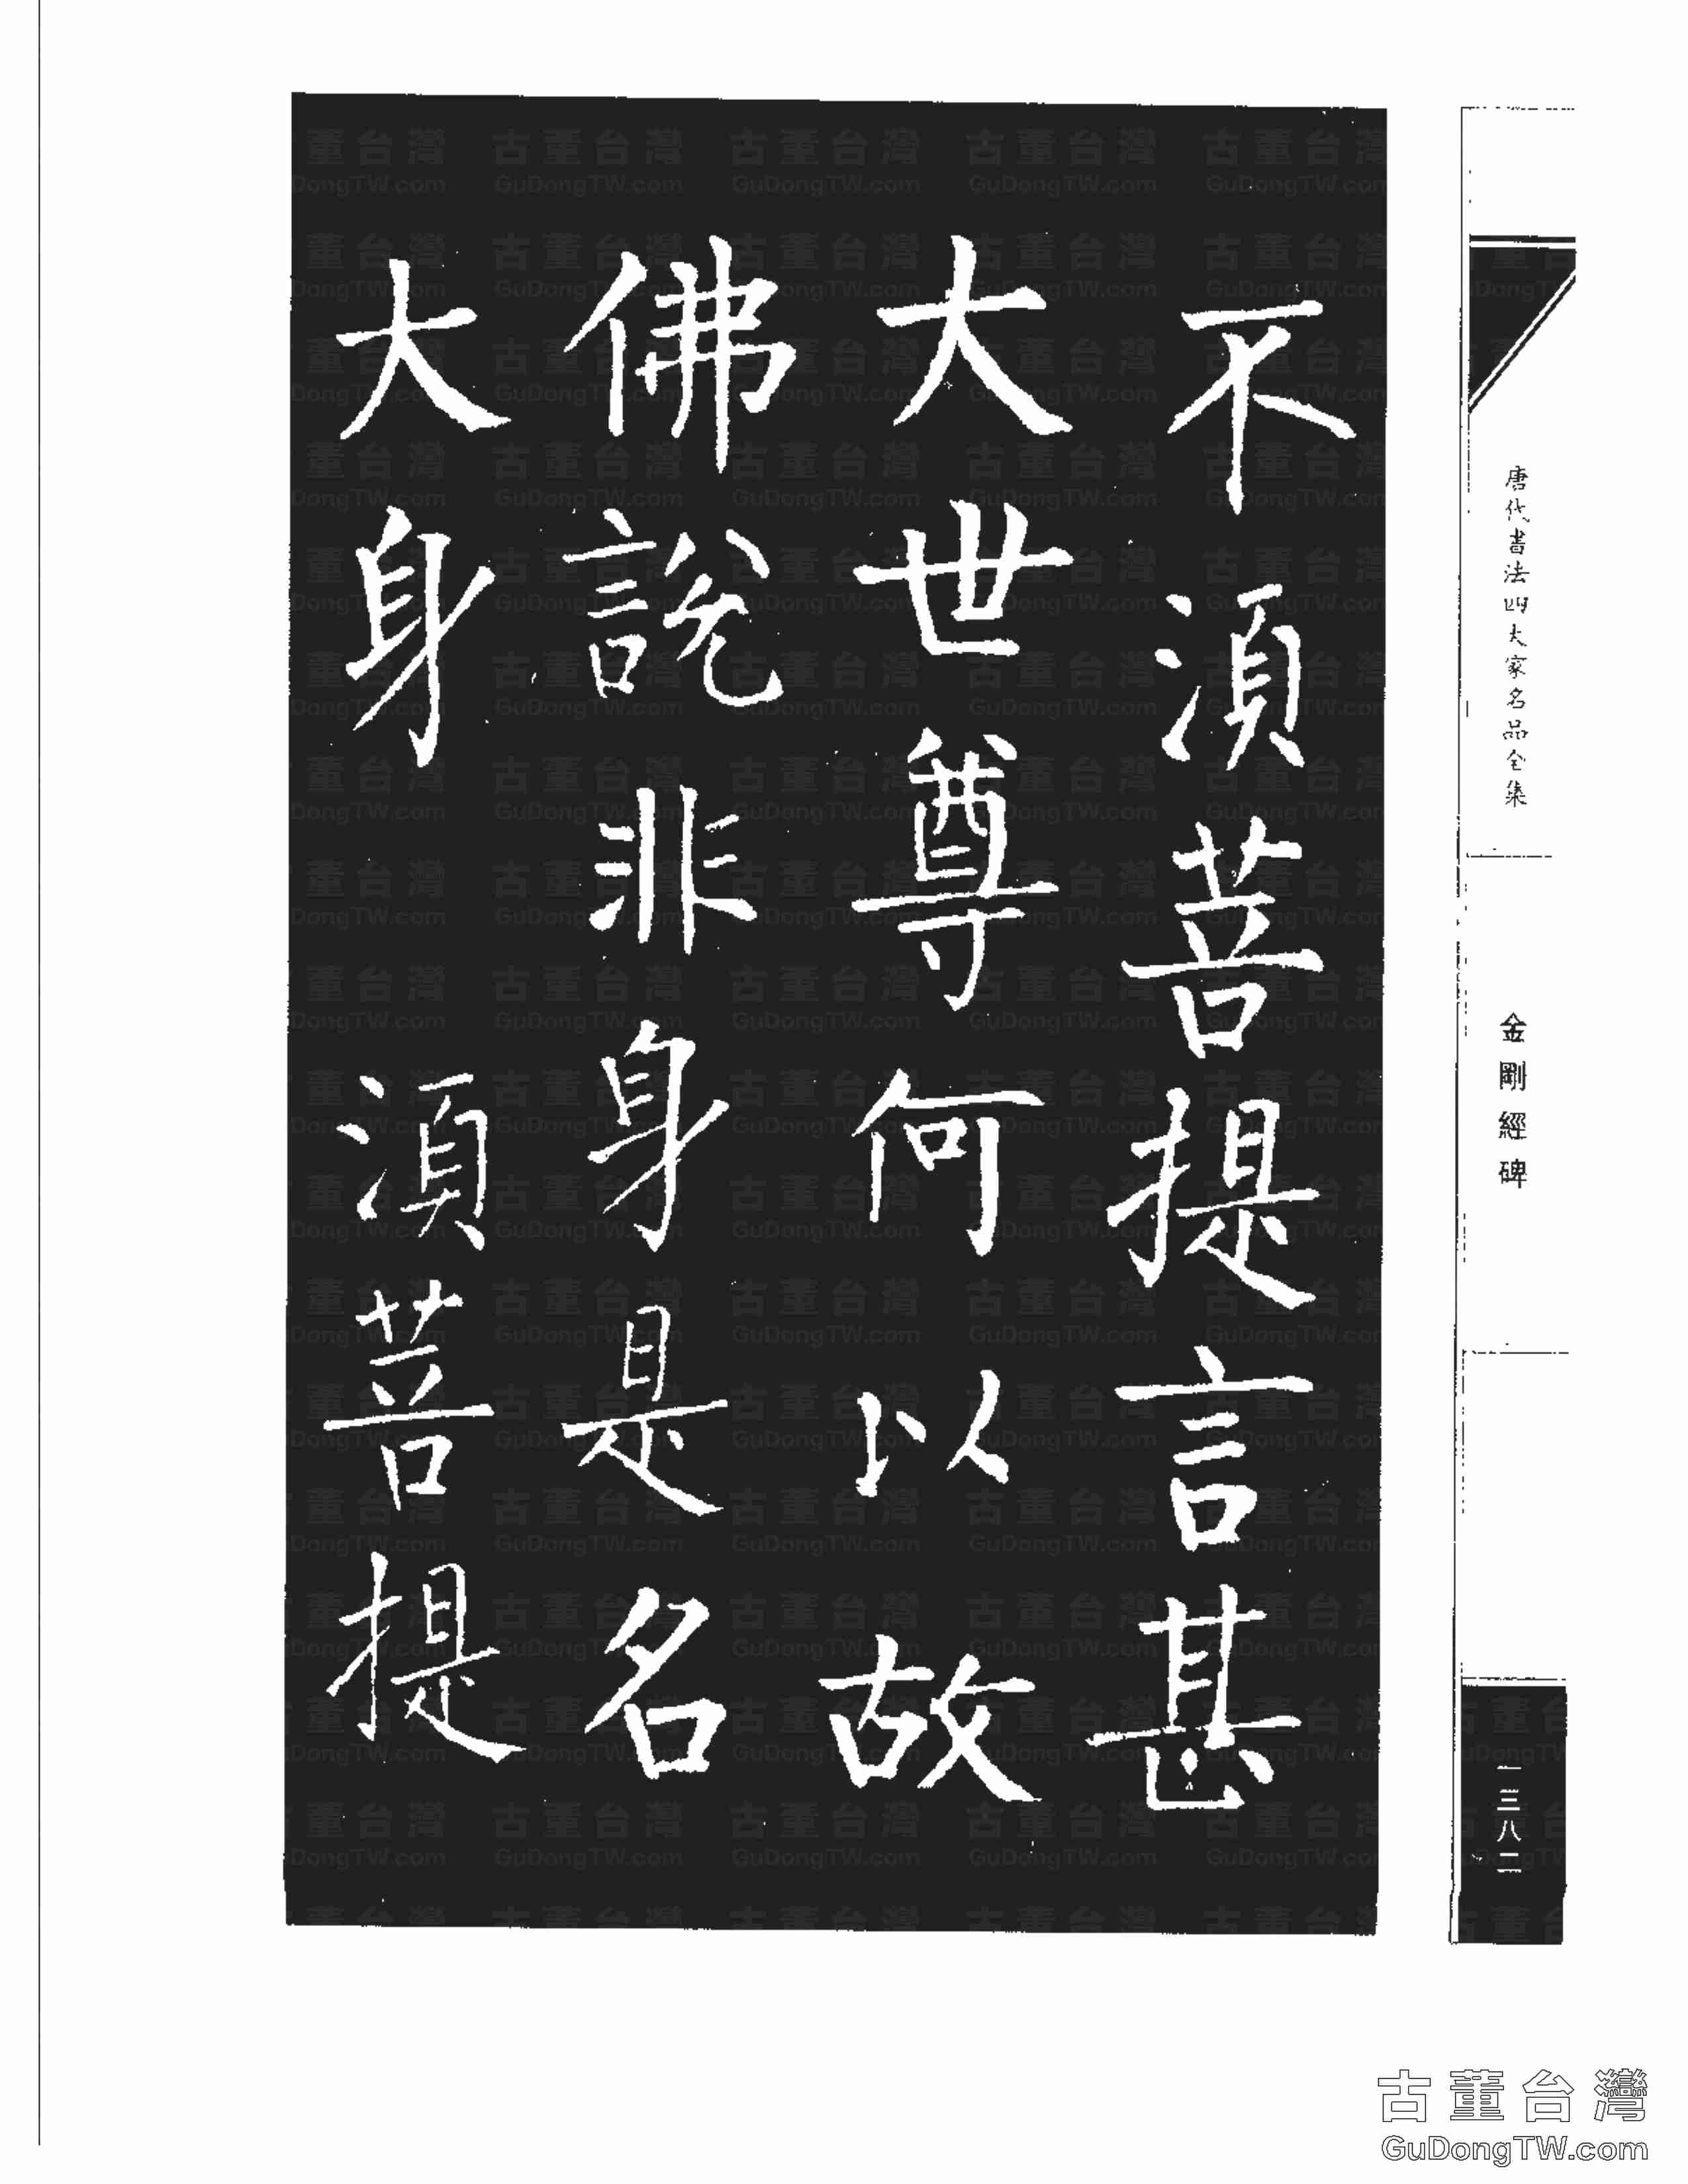 不湏菩提言甚
大世尊何以故
佛說非身是名
大身 湏菩提
唐代書法四大家名品全集
金剛經碑
一三八二
古董台灣
GuDongTW.com